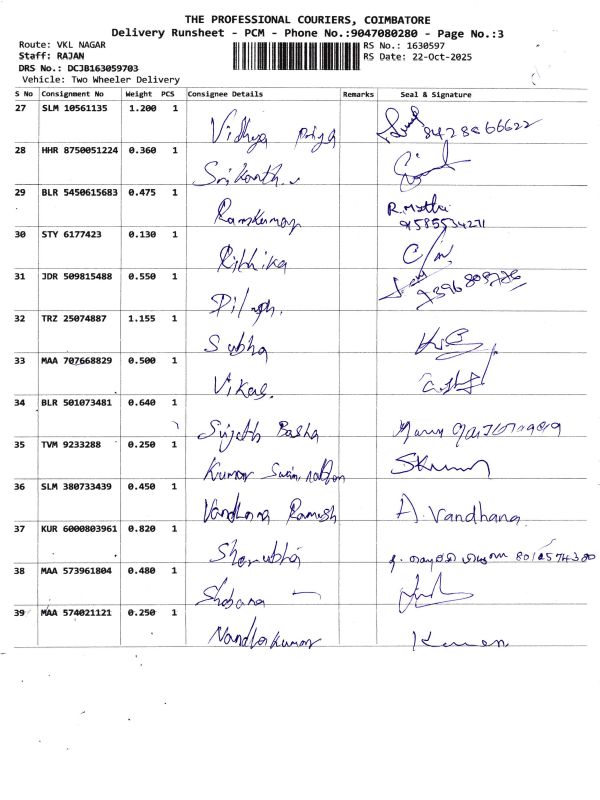 THE PROFESSIONAL COURIERS, COIMBATORE
Delivery Runsheet - PCM - Phone No.:9047080280 - Page No.:3
Route: VKL NAGAR
RS No.: 1630597
Staff: RAJAN
RS Date: 22-Oct-2025
DRS No.: DCJB163059703
Vehicle: Two Wheeler Delivery
S No Consignment No Weight PCS Consignee Details Remarks Seal & Signature
27 SLM 10561135 1.200 1
Vidhya Priya 8428966622
28 HHR 8750051224 0.360 1
Srikanth
29 BLR 5450615683 0.475 1
Ramkumar R. Muthu
9585534271
30 STY 6177423 0.130 1
Rithika
31 JDR 509815488 0.550 1
32 TRZ 25074887 1.155 1
Subha
33 MAA 707668829 0.500 1
Vikas.
34 BLR 501073481 0.640 1
Basha
35 TVM 9233288 0.250 1
Kumar
36 SLM 380733439 0.450 1
Vandhana Ramesh A. Vandhana
37 KUR 6000803961 0.820 1
38 MAA 573961804 0.480 1
Shobana
39 MAA 574021121 0.250 1
Nandhakumar